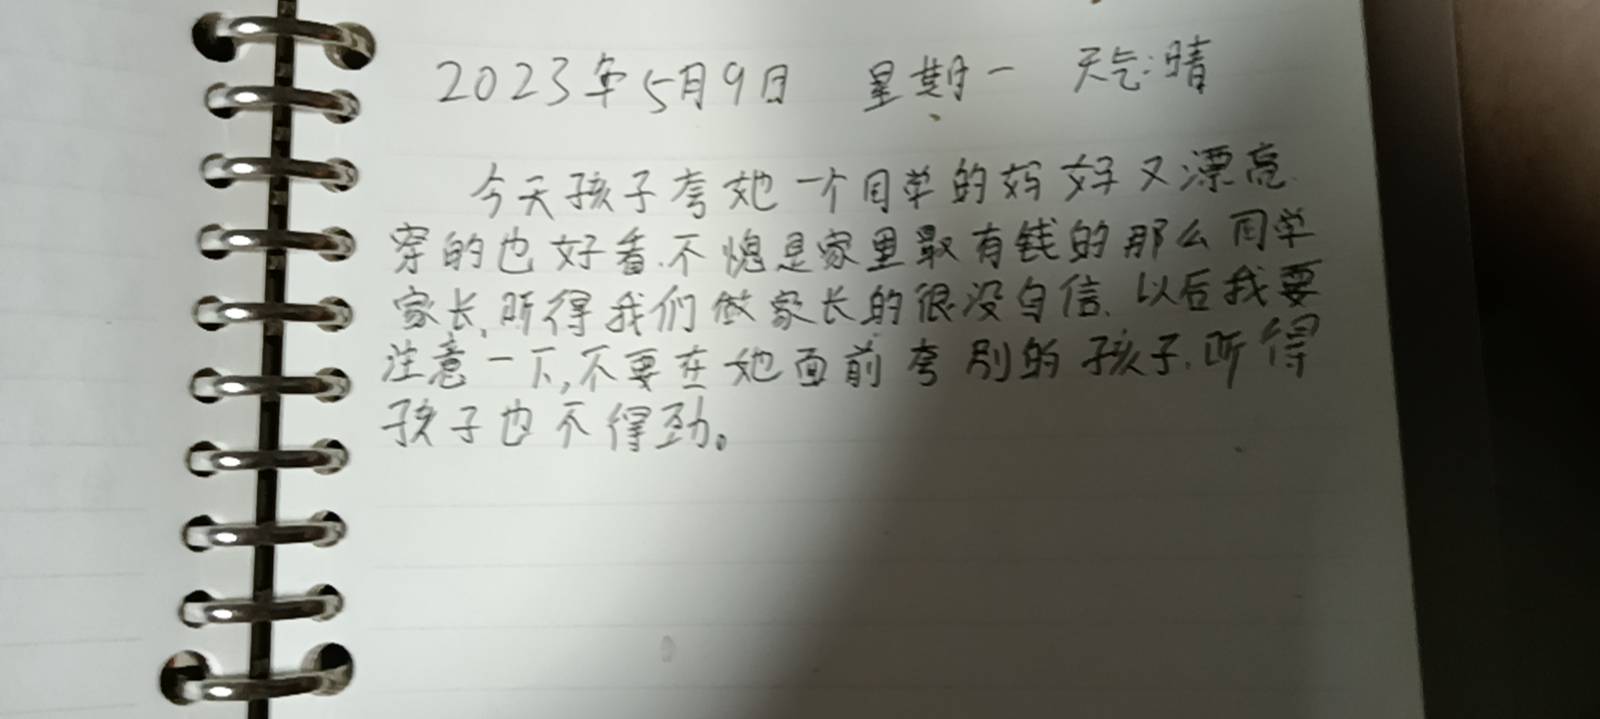 2023年5月9日 星期一 天气:晴
今天孩子夸她一个同学的妈好又漂亮.
穿的也好看.不愧是家里最有钱的那么同学
家长,听得我们做家长的很没自信.以后我要
注意一下,不要在她面前夸别的孩子.听得
孩子也不得劲。